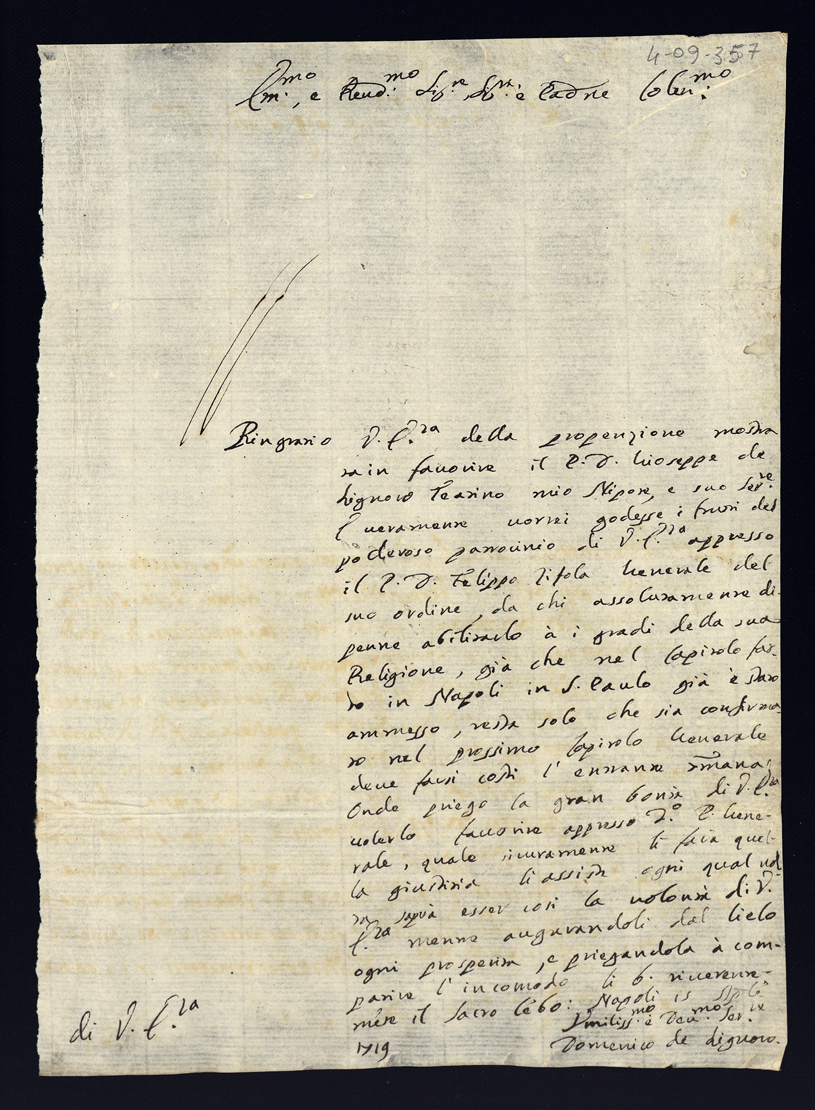 4-09-357
Em.mo, e Revd.mo Sig.re, Sig.re e Padrne Colen.mo
Ringratio V. E.za della propenzione mostra
ta in favorire il P. D. Gioseppe de
Lignoro Teatino mio Nipote, e suo Ser.re
E veramente vorrei godesse i frutti del
poderoso patrocinio di V. E.za appresso
il P. D. Felippo Zifola Generale del
suo ordine, da chi assolutamente di-
penne abilitarlo à i gradi della sua
Religione, già che nel Capitolo fat-
to in Napoli in S. Paulo già è stato
ammesso, resta solo che sia confirma-
to nel prossimo Capitolo Generale
deve farsi costì l'entrante
Onde priego la gran bontà di V. E.za
volerlo favorire appresso d.o P. Gene-
rale, quale sicuramente li farà quel-
la giustizia li assiste ogni qual vol-
ta saprà esser così la volontà di V.
E.za mentre augurandoli dal Cielo
ogni prosperità, e priegandola à com-
patire l'incomodo li b. riverente-
m.te il sacro lembo: Napoli 15
1719
di V. E.za
Umiliss.mo e Dev.mo Ser.re
Domenico de Lignoro.